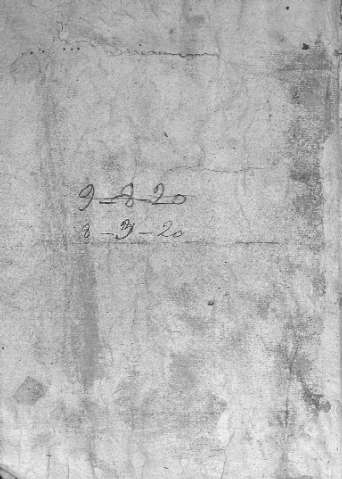 9-8-20
8-3-20